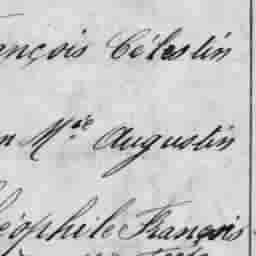 ançois Célestin
n M.ne Augustin
éophile François